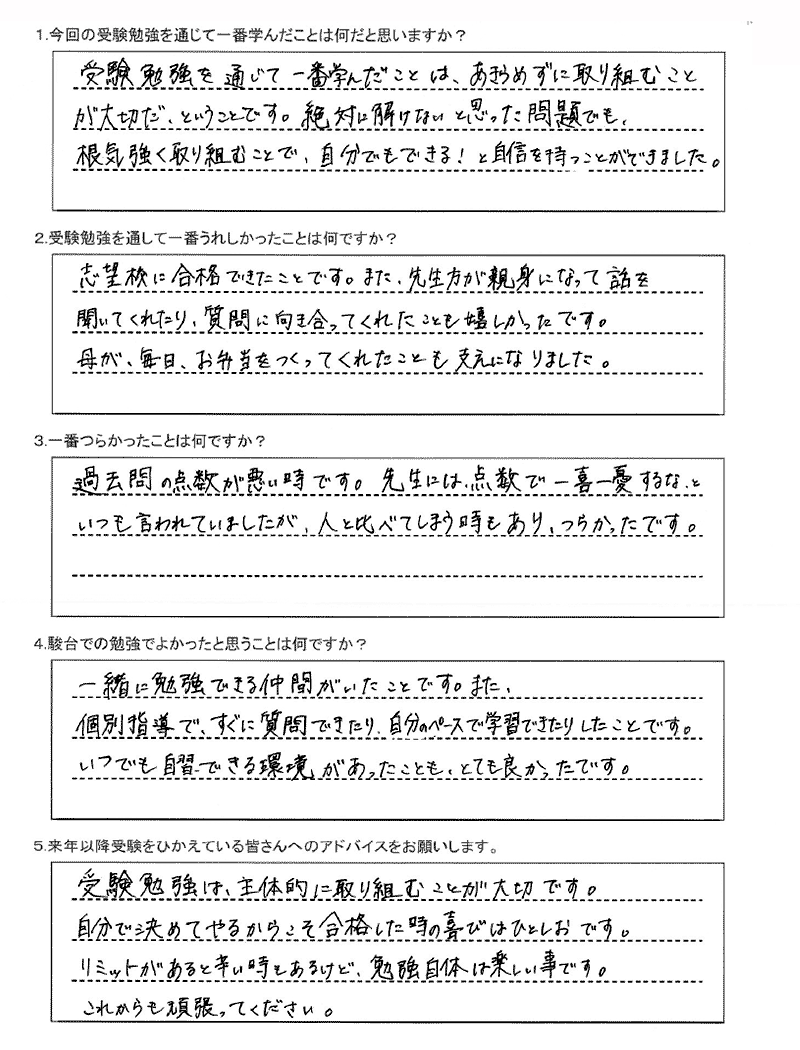 1.今回の受験勉強を通じて一番学んだことは何だと思いますか？
受験勉強を通じて一番学んだことは、あきらめずに取り組むこと
が大切だ、ということです。絶対に解けないと思った問題でも、
根気強く取り組むことで、自分でもできる！と自信を持つことができました。
2.受験勉強を通して一番うれしかったことは何ですか？
志望校に合格できたことです。また、先生方が親身になって話を
聞いてくれたり、質問に向き合ってくれたことも嬉しかったです。
母が、毎日、お弁当をつくってくれたことも支えになりました。
3.一番つらかったことは何ですか？
過去問の点数が悪い時です。先生には、点数で一喜一憂するな、と
いつも言われていましたが、人と比べてしまう時もあり、つらかったです。
4.駿台での勉強でよかったと思うことは何ですか？
一緒に勉強できる仲間がいたことです。また、
個別指導で、すぐに質問できたり、自分のペースで学習できたりしたことです。
いつでも自習できる環境があったことも、とても良かったです。
5.来年以降受験をひかえている皆さんへのアドバイスをお願いします。
受験勉強は、主体的に取り組むことが大切です。
自分で決めてやるからこそ合格した時の喜びはひとしおです。
リミットがあると辛い時もあるけど、勉強自体は楽しい事です。
これからも頑張ってください。